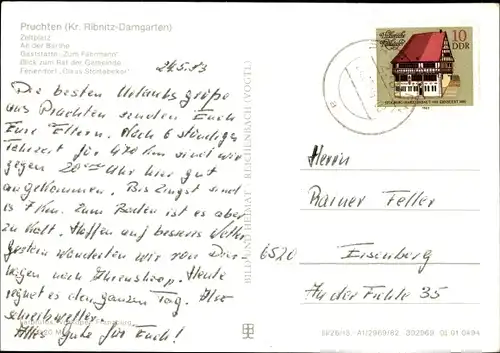 Pruchten (Kr. Ribnitz-Damgarten)
Zeltplatz
An der Barthe
Gaststätte "Zum Fährmann"
Blick zum Rat der Gemeinde
Feriendorf "Claus Störtebeker"
24.5.83
Die besten Urlaubsgrüße
aus Pruchten senden Euch
Eure Eltern. Nach 6 stündiger
Fahrzeit für 470 km sind wir
gegen 20 Uhr hier gut
angekommen. Bis Zingst sind
es 7 Km. Zum Baden ist es aber
zu kalt. Hoffen auf besseres Wetter
gestern wanderten wir von
nach Ahrenshoop. Heute
regnet es den ganzen Tag. Also
schreibwetter.
Alles Gute für Euch!
BILD UND HEIMAT REICHENBACH (VOGTL)
10
DDR
Herrn
Rainer Feller
6520 Eisenberg
An der Fichte 35
01 01 0494